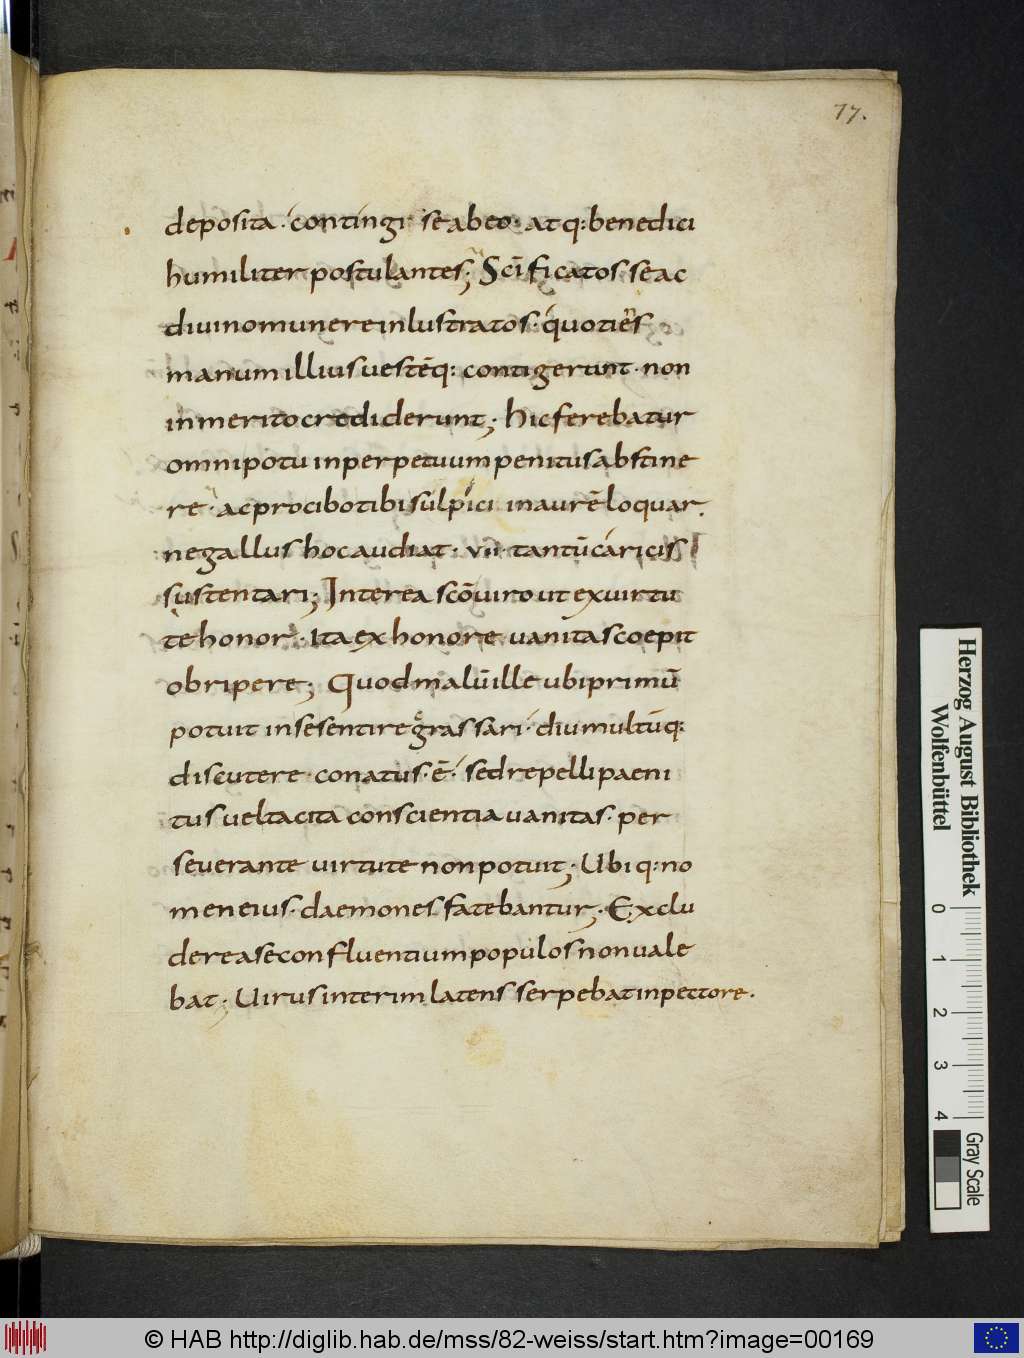 77.
deposita · contingi se abeo · atq: benedici
humiliter postulantes; Scīficatos se ac
divino munere inlustratos · quotiens
manum illius vestēq: contigerunt · non
inmerito crediderunt; hic ferebatur
omni potu inperpetuum penitus abstine
re · ac pro cibo tibi sulpici inaurē loquar,
ne gallus hoc audiat · vii · tantū caricis
sustentari; Interea scō viro ut ex virtu
te honor · Ita ex honore vanitas coepit
obripere; Quod malū ille ubi primū
potuit in se sentire grassari · diu multūq:
discutere conatus · ē · sed repelli paeni
tus vel tacita conscientia vanitas · per
severante virtute non potuit; Ubiq: no
men eius · daemones fatebantur; Exclu
dere a se confluentium populos non vale
bat; Uirus interim latens serpebat in pectore.
Herzog August Bibliothek
Wolfenbüttel
0 1 2 3 4
Gray Scale
© HAB http://diglib.hab.de/mss/82-weiss/start.htm?image=00169